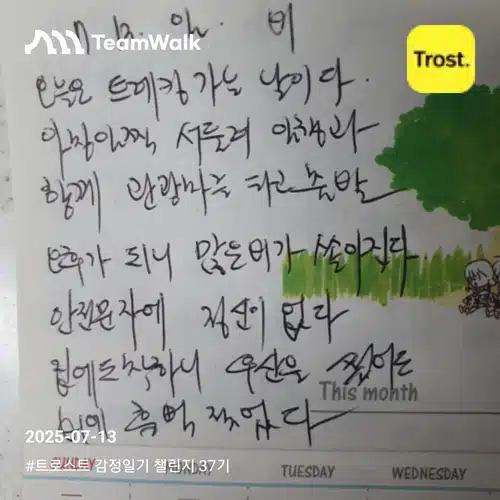 TeamWalk
Trost.
7. 13. 일. 비
오늘은 트레킹 가는 날이다.
아침일찍 서둘러 일행과
함께 관광버스 타고 출발
오후가 되니 많은비가 쏟아진다
안전문자에 정신이 없다
집에도착하니 우산을 썼어도
비에 흠뻑 젖었다
This month
2025-07-13
#트로스트 감정일기 챌린지 37기
TUESDAY
WEDNESDAY